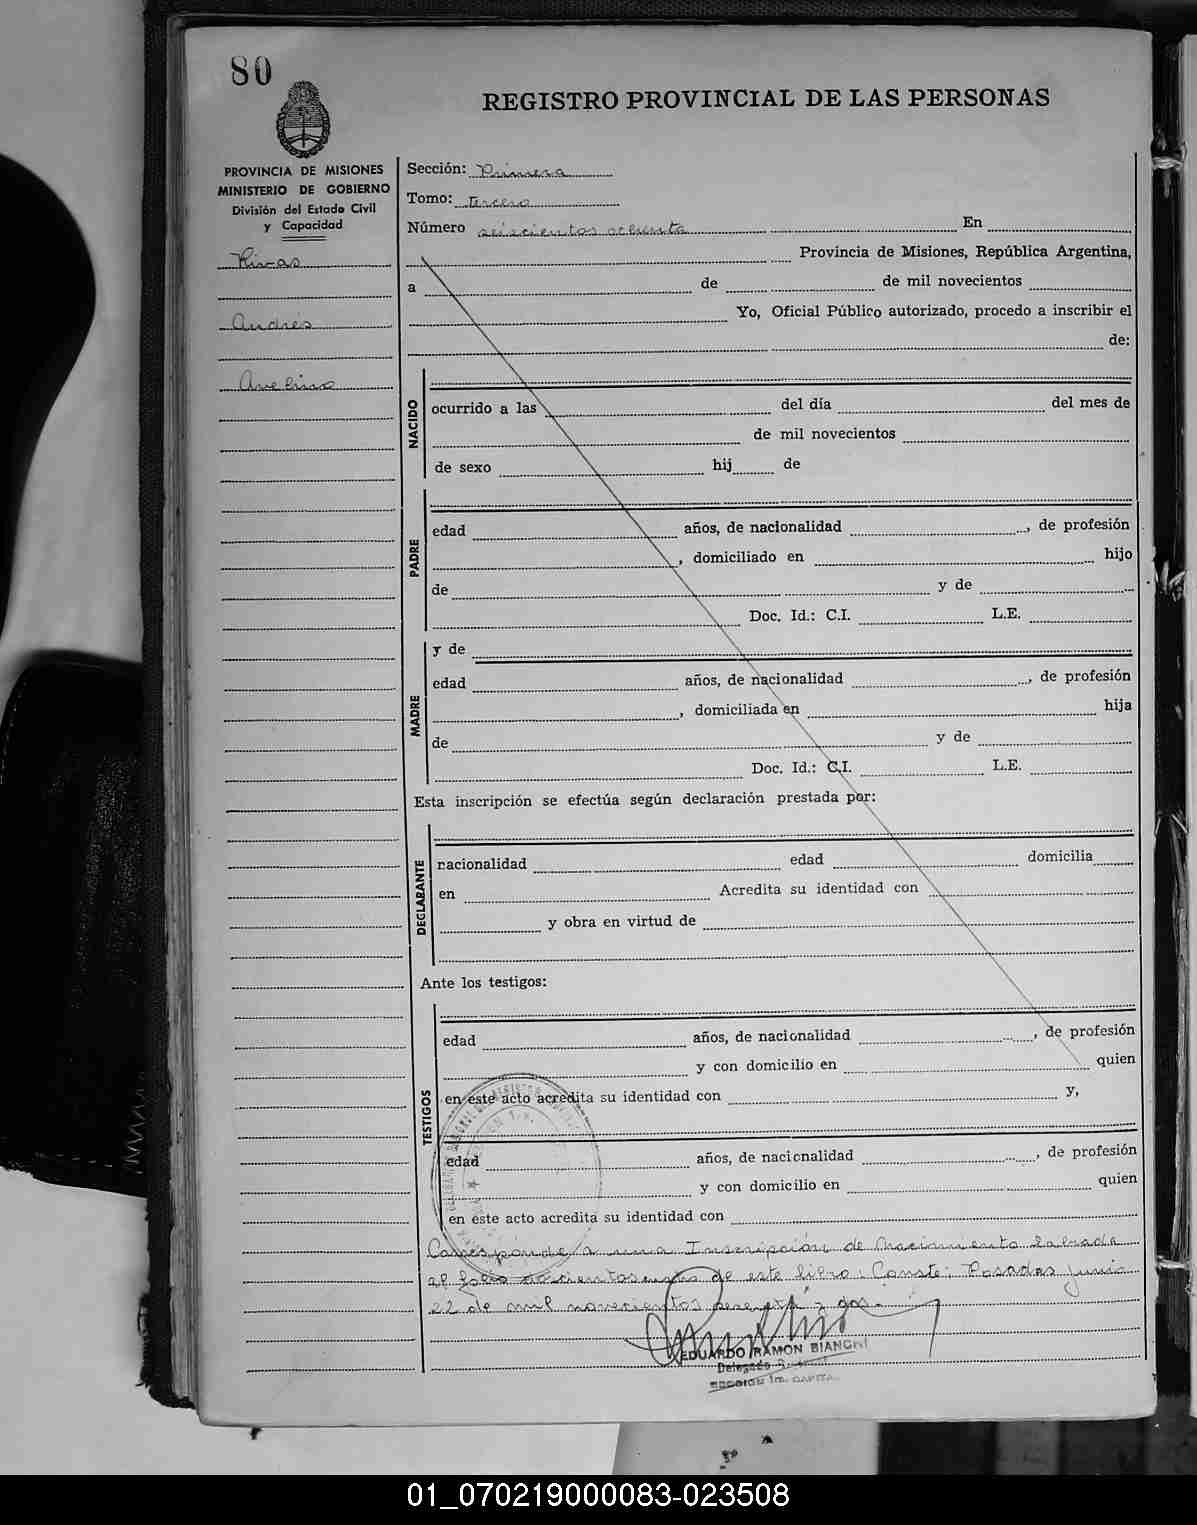 80
REGISTRO PROVINCIAL DE LAS PERSONAS
PROVINCIA DE MISIONES
MINISTERIO DE GOBIERNO
División del Estado Civil
y Capacidad
Rivas
Andrés
Avelino
Sección: Primera
Tomo: Tercero
Número seiscientos ochenta En
Provincia de Misiones, República Argentina,
a de de mil novecientos
Yo, Oficial Público autorizado, procedo a inscribir el
de:
NACIDO
ocurrido a las del día del mes de
de mil novecientos
de sexo hij de
PADRE
edad años, de nacionalidad , de profesión
, domiciliado en hijo
de y de
Doc. Id.: C.I. L.E.
MADRE
y de
edad años, de nacionalidad , de profesión
, domiciliada en hija
de y de
Doc. Id.: C.I. L.E.
Esta inscripción se efectúa según declaración prestada por:
DECLARANTE
nacionalidad edad domicilia
en Acredita su identidad con
y obra en virtud de
Ante los testigos:
TESTIGOS
edad años, de nacionalidad , de profesión
y con domicilio en quien
en este acto acredita su identidad con y,
edad años, de nacionalidad , de profesión
y con domicilio en quien
en este acto acredita su identidad con
Corresponde a una Inscripción de Nacimiento labrada
al folio de este libro: Conste: Posadas Junio
22 de mil novecientos sesenta y dos.
EDUARDO RAMON BIANCHI
Delegado
SECCION 1ra. CAPITAL
01_070219000083-023508